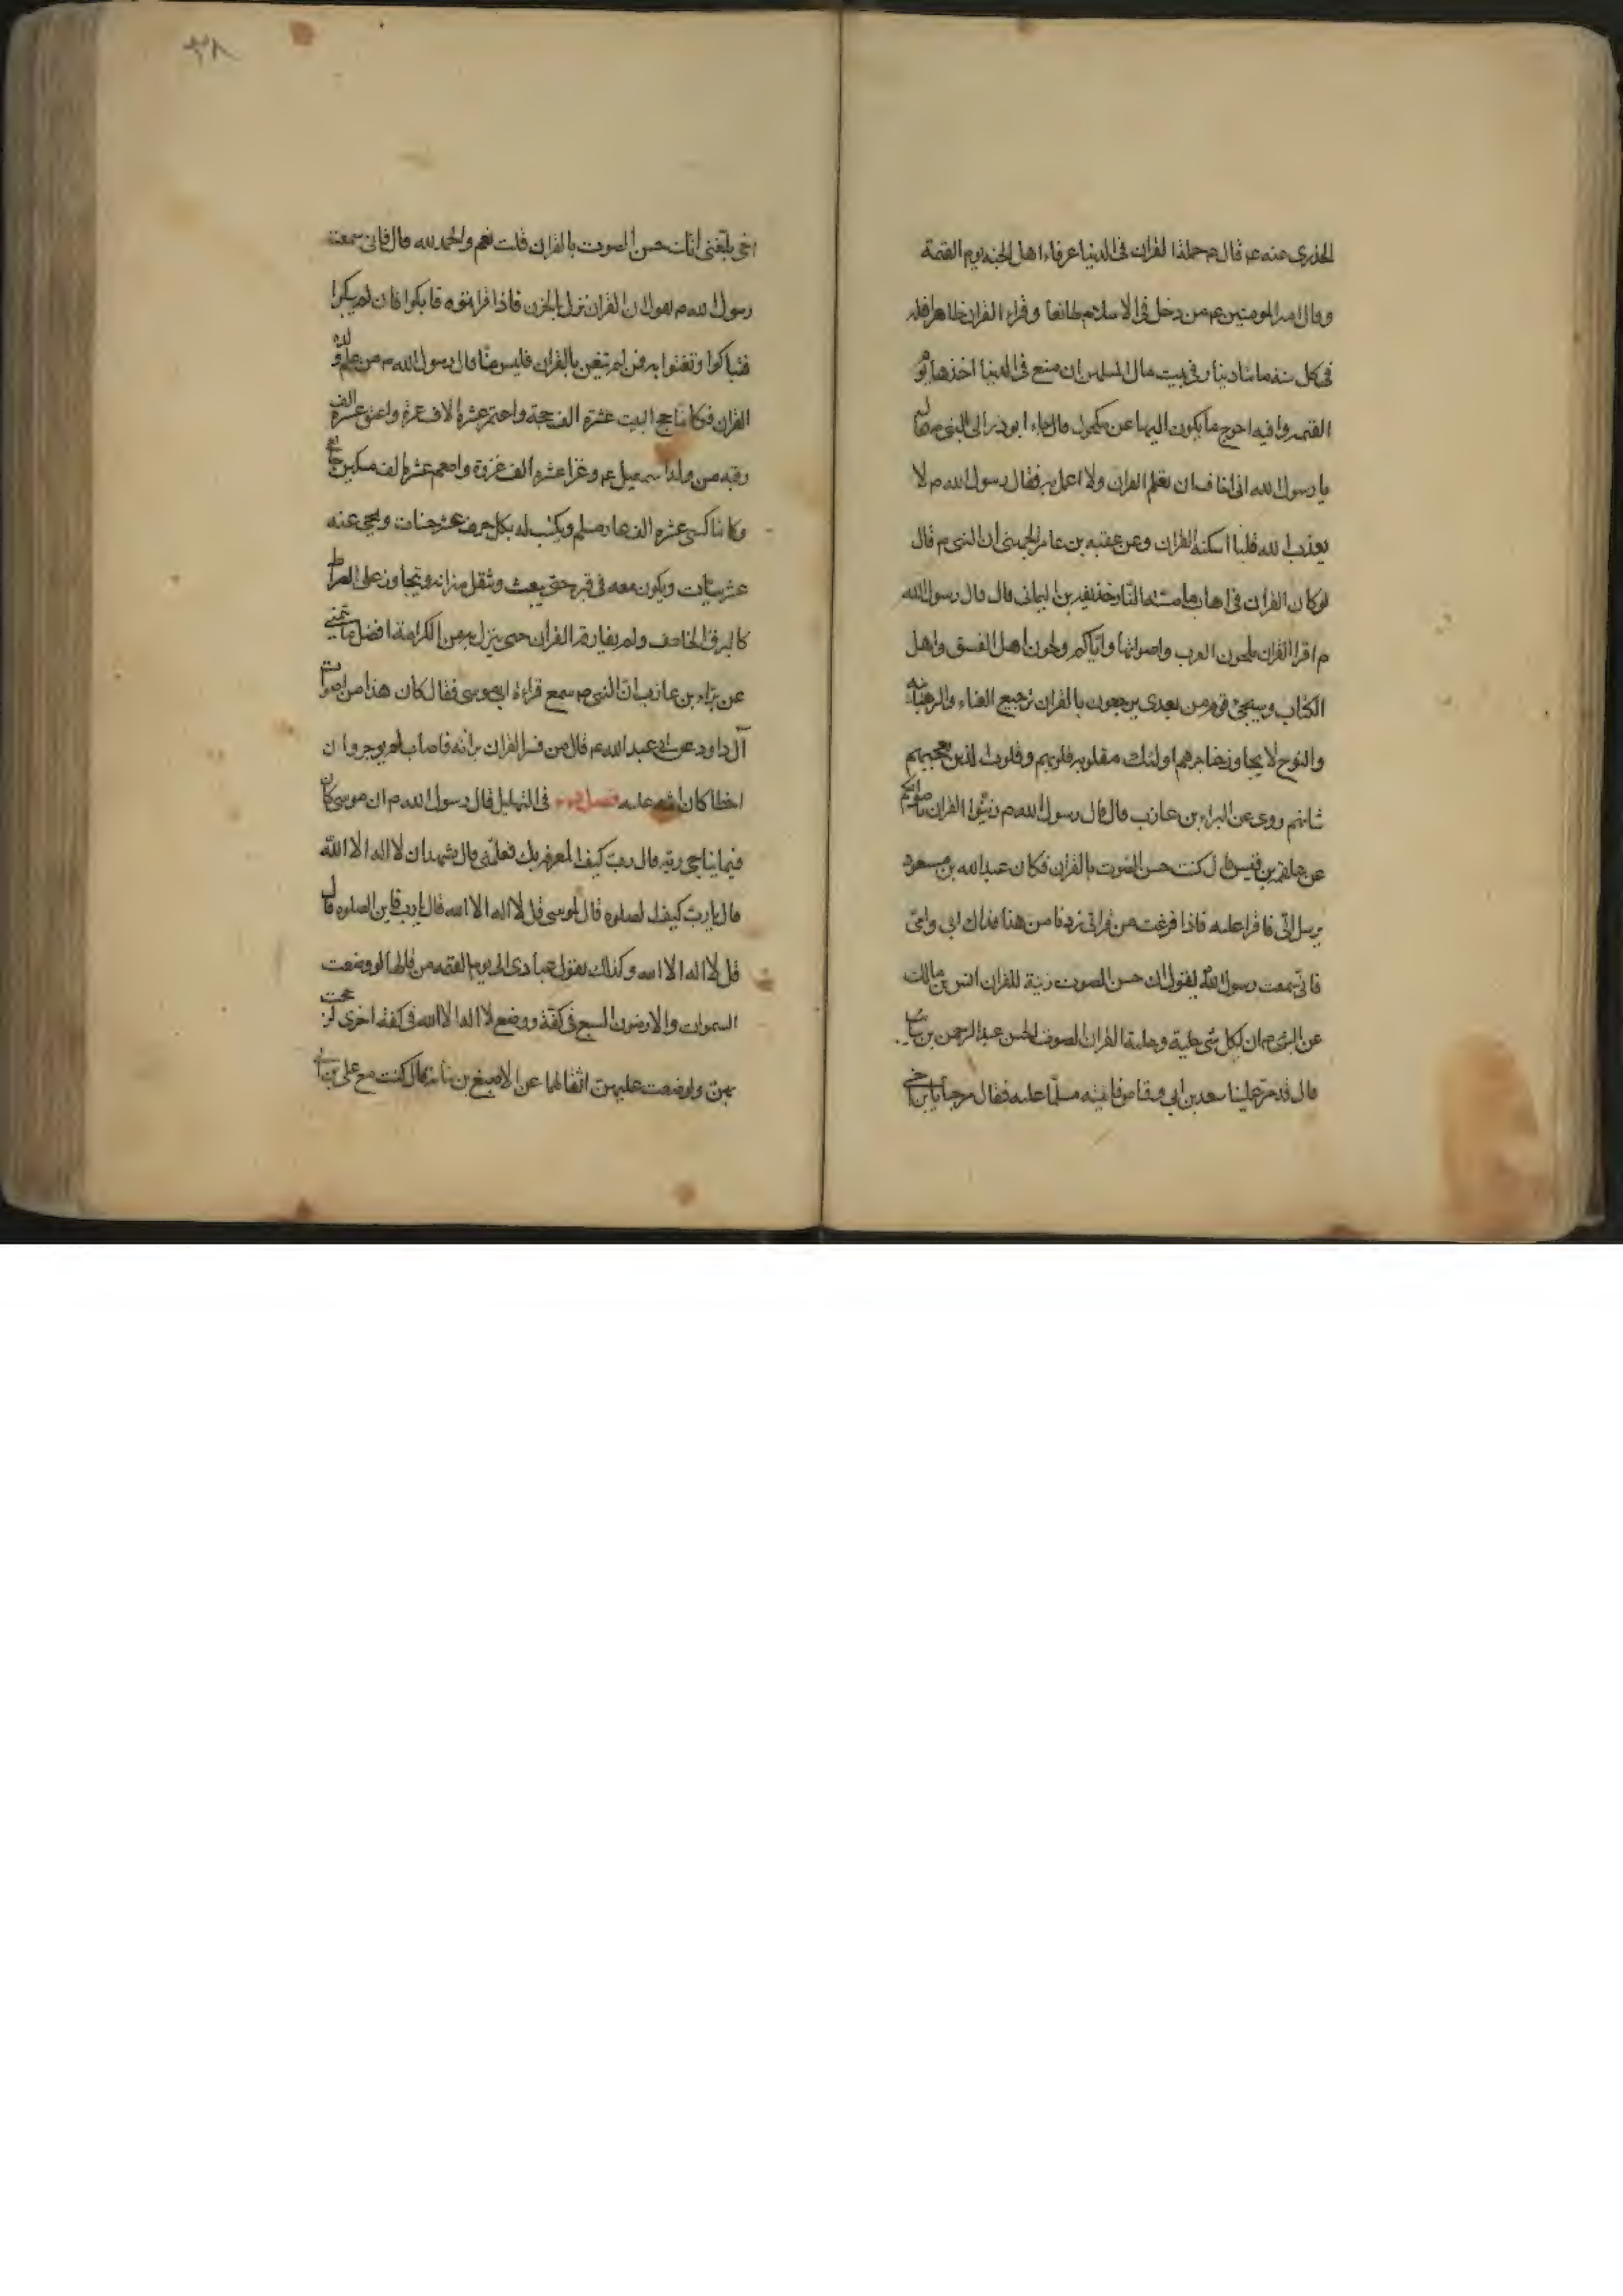 الخدري عنه عم قال م حملة القران فى الدنيا عرفاء اهل الجنة يوم القيمة
وقال امير المومنين عم من دخل فى الاسلام طائعا وقراء القران ظاهرا فله
فى كل سنة مائتا دينار فى بيت مال المسلمين ان منع فى الدنيا اخذها يوم
القيمة وافيه احوج ما يكون اليها عن مكحول قال جاء ابو ذر الى النبى م فقال
يا رسول الله انى اخاف ان تعلم القران ولا اعمل به فقال رسول الله م لا
يعذب الله قلبا اسكنه القران وعن عقبه بن عامر الجهنى ان النبى م قال
لو كان القران فى اهاب ما مسته النار حذيفه بن اليمان قال قال رسول الله
م اقرا القران بلحون العرب واصواتها واياكم ولحون اهل الفسق واهل
الكتاب وسيجئ قوم من بعدى يرجعون بالقران ترجيع الغناء والرهبانيه
والنوح لا يجاوز حناجرهم اولئك مقلوبه قلوبهم وقلوب الذين يعجبهم
شانهم روى عن البراء بن عازب قال قال رسول الله م زينوا القران باصواتكم
عن علقمه بن قيس قال كنت حسن الصوت بالقران فكان عبد الله بن مسعود
يرسل الى فاقرا عليه فاذا فرغت من قراتى زدنا من هذا فداك ابى وامى
فانى سمعت رسول الله يقول ان حسن الصوت زينة للقران انس بن مالك
عن النبى م ان لكل شى حلية وحلية القران الصوت الحسن عبد الرحمن بن سائب
قال قدم علينا سعد بن ابى وقاص فاتيته مسلما عليه فقال مرحبا يا بن اخى
٣٨
اخى بلغنى انك حسن الصوت بالقران قلت نعم والحمد لله قال فانى سمعت
رسول الله م يقول ان القران نزل بالحزن فاذا قراتموه فابكوا فان لم تبكوا
فتباكوا وتغنوا به فمن لم يتغن بالقران فليس منا قال رسول الله م من علم ولده
القران فكانما حج البيت عشرة الف حجة واعتمر عشرة الاف عمرة واعتق عشرة الف
رقبه من ولد اسمعيل عم وغزا عشرة الف غزوة واطعم عشرة الف مسكين جائع
وكانما كسى عشرة الف عار مسلم ويكتب له بكل حرف عشر حسنات ويمحى عنه
عشر سيئات ويكون معه فى قبره حتى يبعث ويثقل ميزانه ويتجاوز على الصراط
كالبرق الخاطف ولم يفارقه القران حتى ينزل به من الكرامة افضل ما يتمنى
عن براء بن عازب ان النبى م سمع قراءة ابى موسى فقال كان هذا من اصوات
آل داود عن ابى عبد الله عم قال من فسر القران برائه فاصاب لم يوجر وان
اخطا كان اثمه عليه فصل فى التهليل قال رسول الله م ان موسى كان
فيما يناجى ربه قال رب كيف المعرفه بك فعلمنى قال تشهد ان لا اله الا الله
قال يا رب كيف الصلوه قال لموسى قل لا اله الا الله قال يا رب فاين الصلوه قال
قل لا اله الا الله وكذلك يقول عبادى الى يوم القيمه من قالها لو وضعت
السموات والارضون السبع فى كفة ووضع لا اله الا الله فى كفة اخرى لرجحت
بهن ولو وضعت عليهن امثالها عن الاصبغ بن نباته قال كنت مع على بن ابى